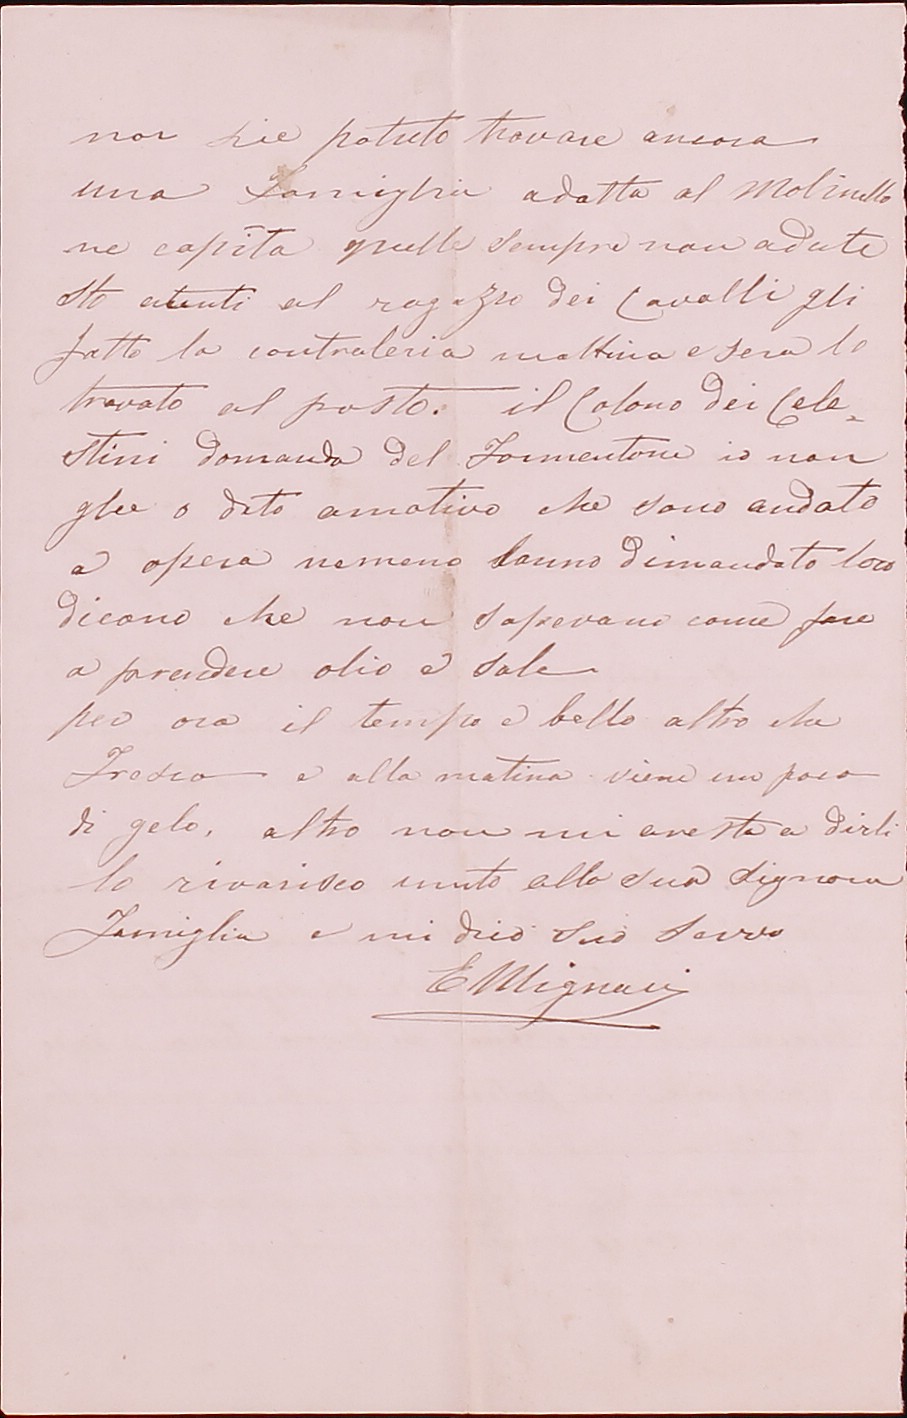 non sie potuto trovare ancora
una Famiglia adatta al Molinello
ne capita quelle sempre non adate
sto atenti al ragazzo dei Cavalli gli
fatto la contraleria mattina e sera lo
trovato al posto. il Colono dei Cele=
stini domanda del Formentone io non
glie o dito amotivo che sono andato
a opera nemeno lanno dimandato loro
dicono che non sapevano come fare
a prendere olio e sale
per ora il tempo e bello altro che
Fresco e alla matina viene un poco
di gelo, altro non mi aresta a dirli
lo rivarisco unito alla sua Signora
Famiglia e mi dico suo Servo
E Mignani